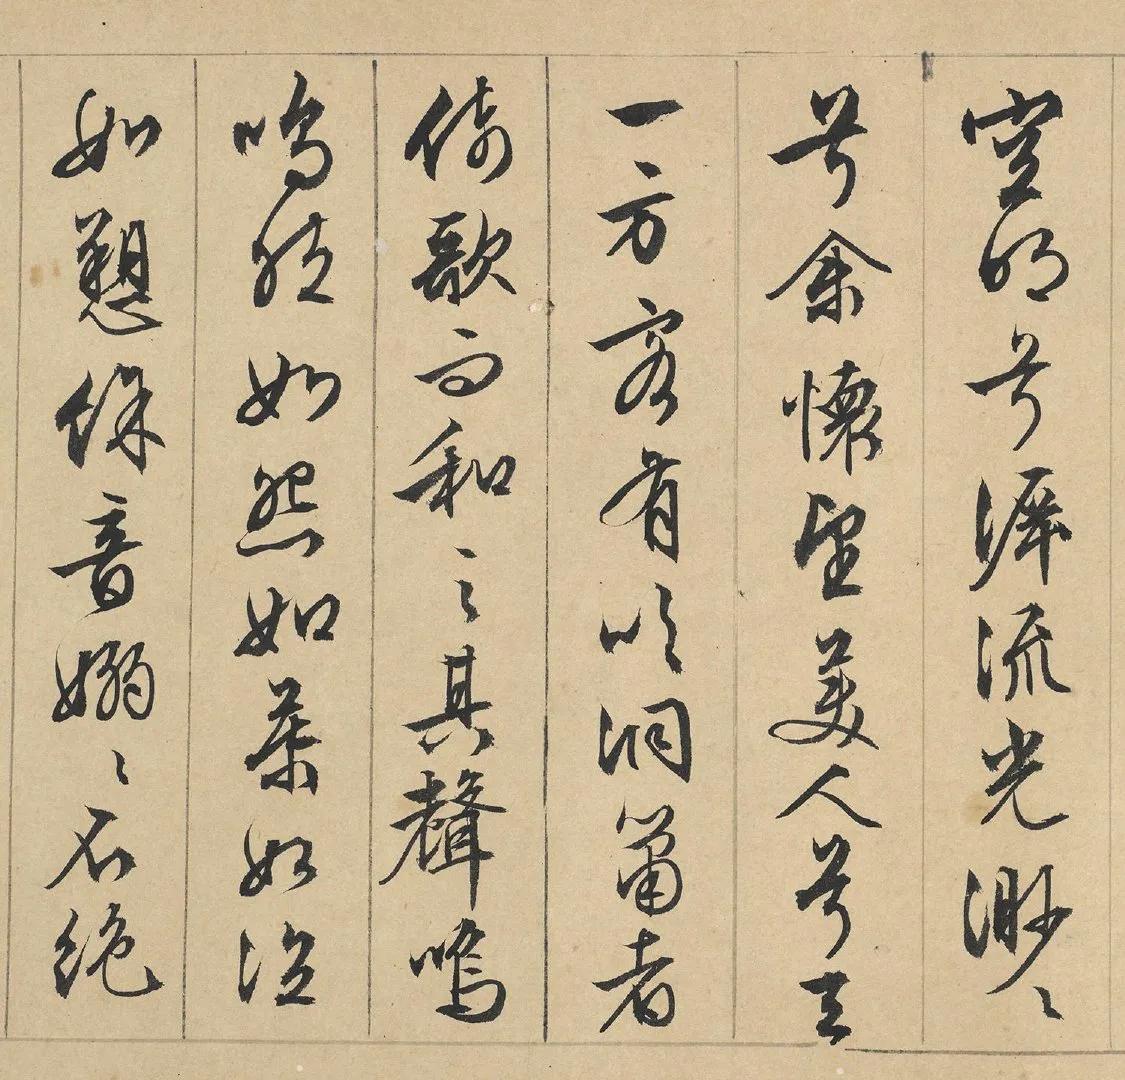 空明兮泝流光渺〻
兮余懷望美人兮天
一方客有吹洞簫者
倚歌而和之其聲嗚
嗚然如怨如慕如泣
如愬餘音嫋〻不絕